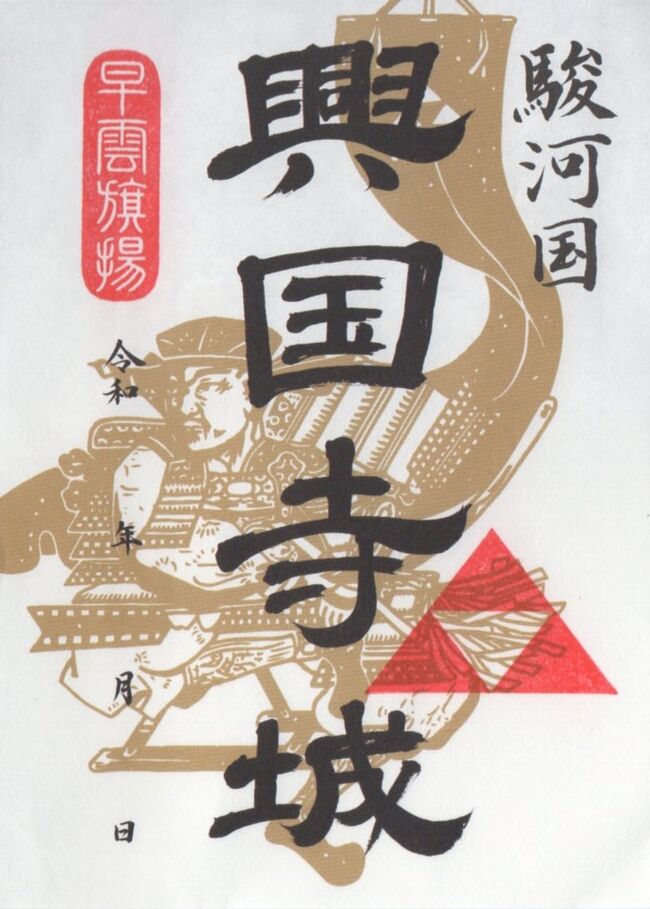 駿河国
興国寺城
早雲旗揚
令和 年 月 日